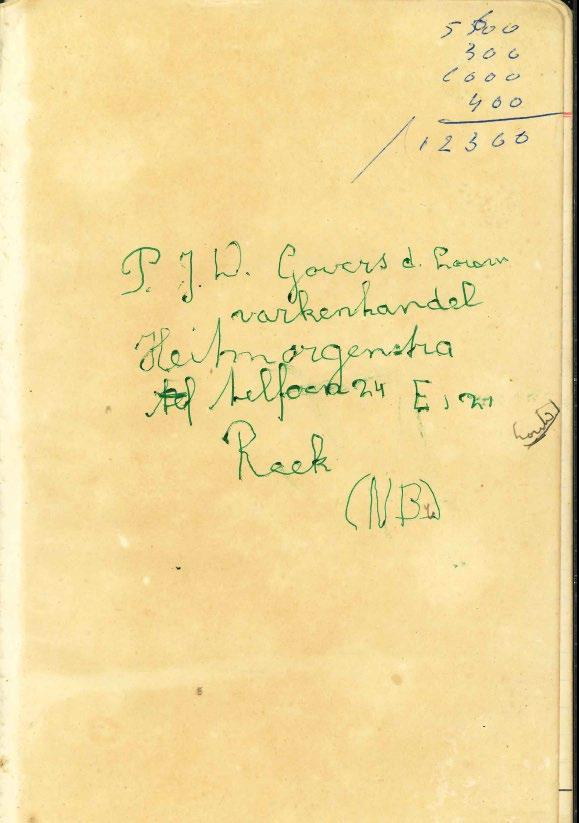 5500
300
6000
400
12300
P. J. W. Govers d.
varkenhandel
Heitmorgenstra
tel telfoon 24 E, 21
Reek
(NB)